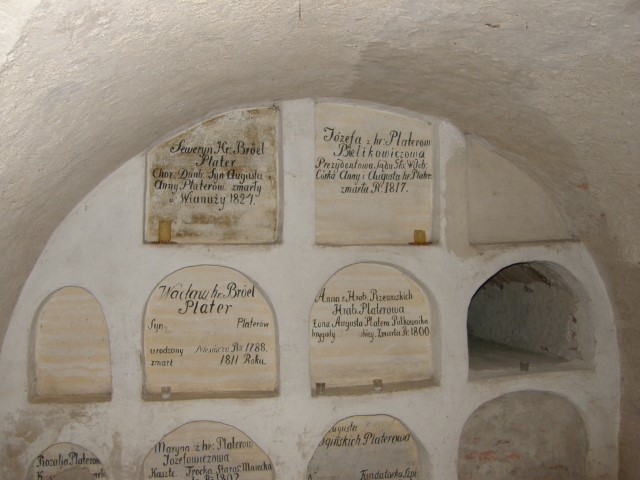 Seweryn Hr. Bröel
Plater
Chor: Dünb. Syn Augusta
Anny Platerów zmarły
w Wianuży 182
Józefa z hr: Platerów
Bielikowiczowa
Prezydentowa Sądu
Córka Anny i Augusta hr. Plater.
zmarła R. 1817.
Wacław hr. Bröel
Plater
Syn Platerów
urodzony Rs 1788.
zmarł 1811 Roku
Anna z Hrab. Rzewuskich
Hrab. Platerowa
Żona Augusta Platera Pułkownika
Zmarła R: 1800
Rozalia Platerow
Maryna z hr: Platerów
Józefowiczowa
Kaszte. Trocka Staroś Mirecka
1802
ugusta
gińskich Platerowa
Fundatorka